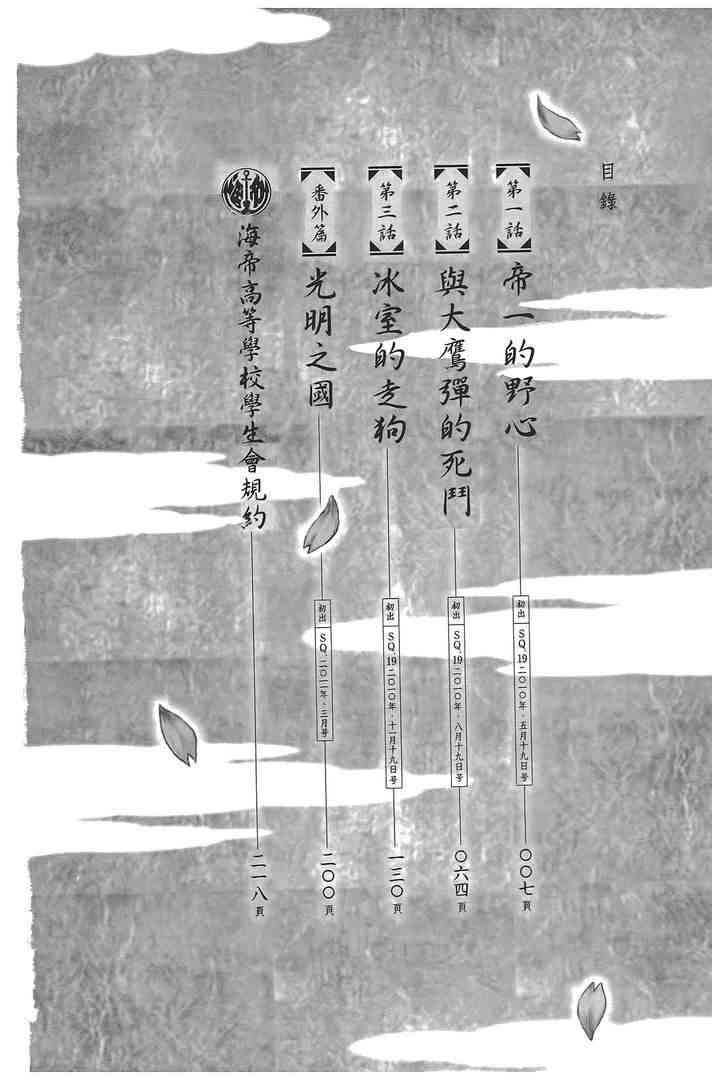 目錄
第一話
帝一的野心
初出 SQ.19 二〇一〇年．五月十九日号
〇〇七頁
第二話
與大鷹彈的死鬥
初出 SQ.19 二〇一〇年．八月十九日号
〇六四頁
第三話
冰室的走狗
初出 SQ.19 二〇一〇年．十一月十九日号
一三〇頁
番外篇
光明之國
初出 SQ. 二〇一一年．三月号
二〇〇頁
海帝
海帝高等學校學生會規約
二一八頁